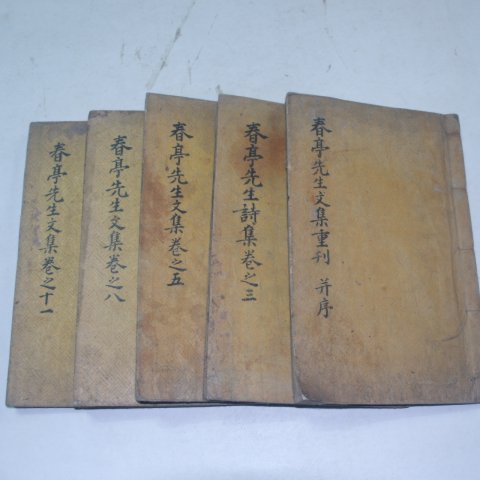 春亭先生文集重刊 并序
春亭先生詩集卷之三
春亭先生文集卷之五
春亭先生文集卷之八
春亭先生文集卷之十一